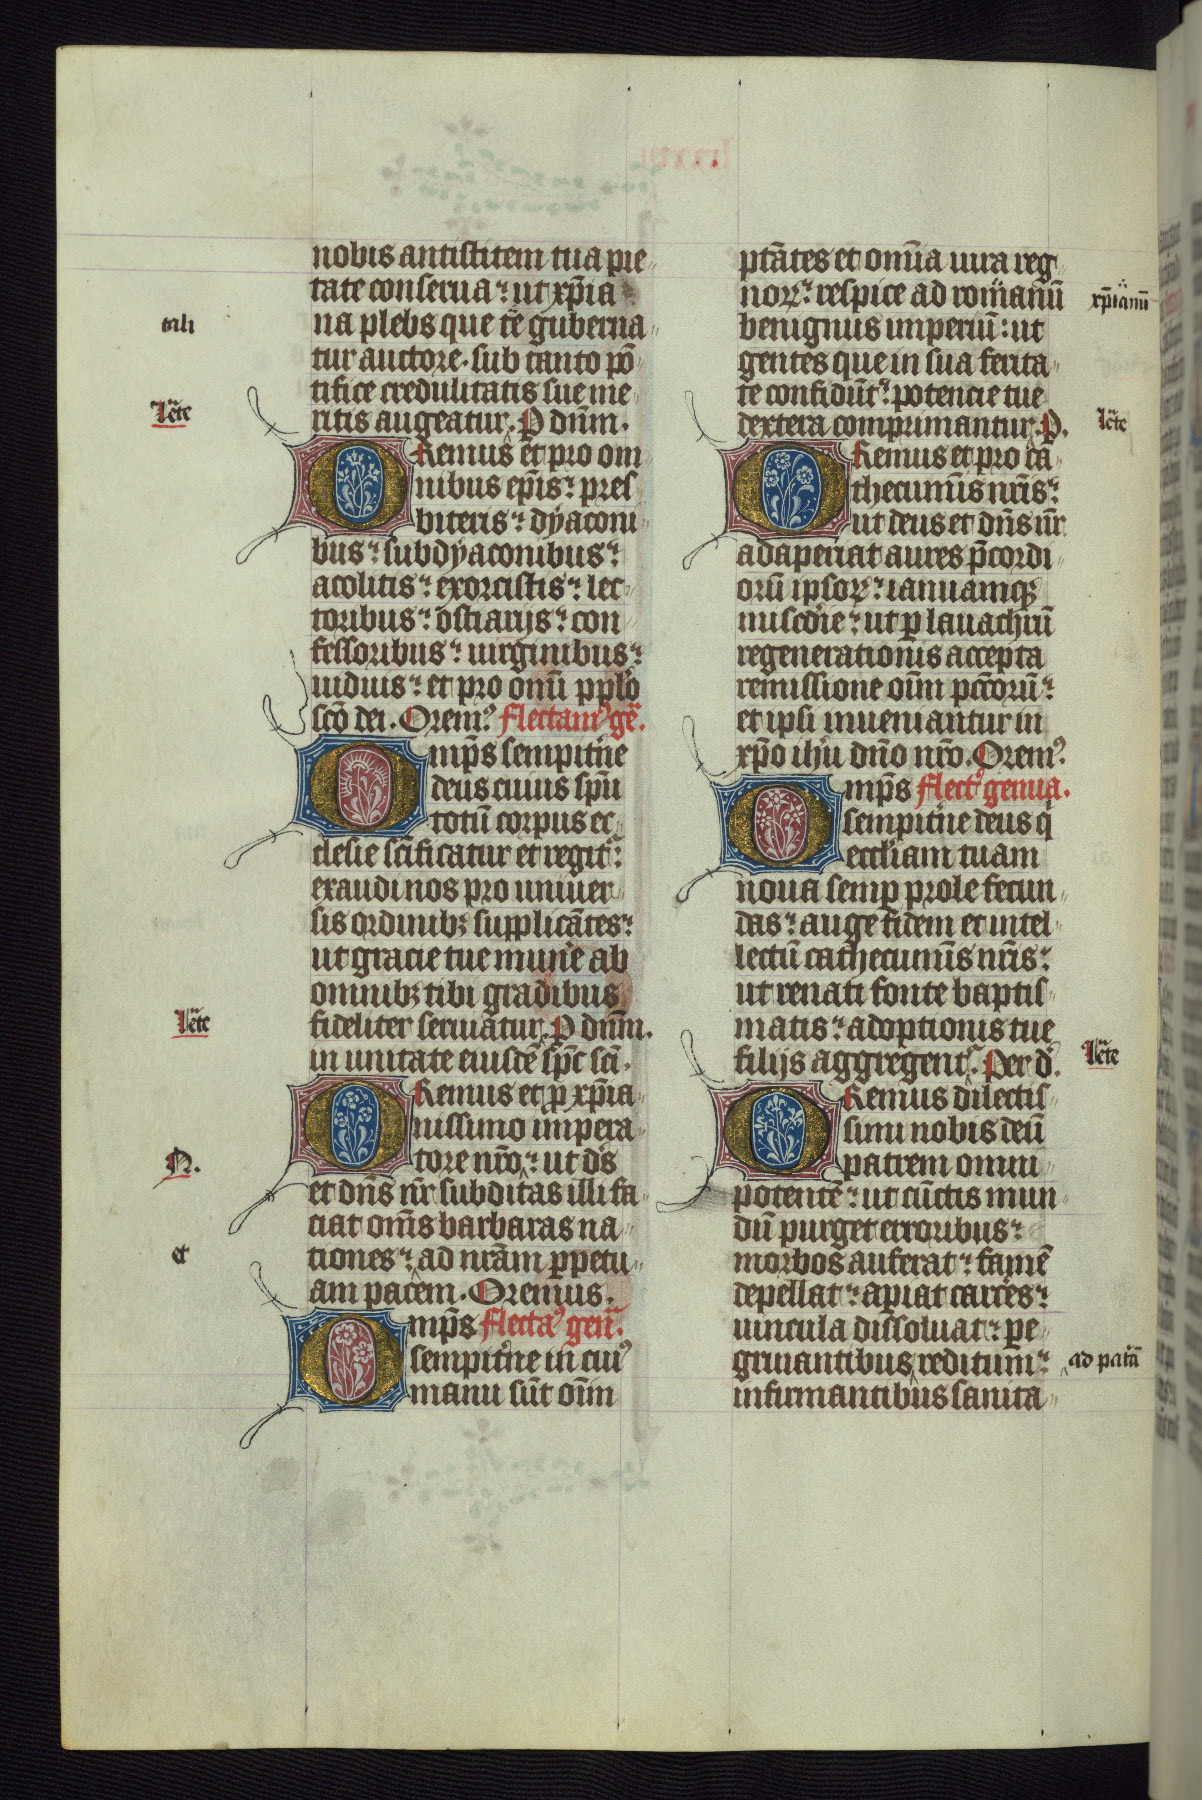 nobis antistitem tua pie
tate conserua: ut xp̄ia
na plebs que tē guberna
tali
tur auctore. sub tanto pō
tifice credulitatis sue me
ritis augeatur. P dn̄m.
Lēte
ORemus et pro om
nibus ep̄is: pres
biteris: dyaconi
bus: subdyaconibus:
acolitis: exorcistis: lec
toribus: ostiarijs: con
fessoribus: uirginibus:
uiduis: et pro om̄i pplo
sc̄o dei. Orem⁹ flectam⁹ gē.
Omp̄s sempit̄ne
deus cuius sp̄u
totū corpus ec
clesie sc̄ificatur et regit᷑:
exaudi nos pro uniuer
sis ordinibꝫ supplicātes:
ut gracie tue mun̄e ab
omnibꝫ tibi gradibus
fideliter seruiatur. P dn̄m.
Lēte
in unitate eiusdē sp̄c sc̄i.
ORemus et p xp̄ia
nissimo impera
tore nr̄o: ut ds̄
N.
et dn̄s nr̄ subditas illi fa
ciat om̄s barbaras na
tiones: ad nrām ppetu
et
am pacem. Oremus.
Omp̄s flecta⁹ gen̄.
sempit̄ne in cui⁹
manu sūt oīm
ptātes et omīa iura reg
noꝝ: respice ad romanū
xp̄ianū
benignus imperiū: ut
gentes que in sua ferita
te confidūt: potencie tue
dextera comprimantur. P.
Lēte
ORemus et pro ca
thecumīs nr̄is:
ut deus et dn̄s nr̄
adaperiat aures p̄cordi
orū ipsoꝝ: ianuamqꝫ
misc̄die: ut p lauachrū
regenerationis accepta
remissione oīm pcc̄orū:
et ipsi inueniantur in
xp̄o ihū dn̄o nr̄o. Orem⁹.
Omp̄s flect⁹ genua.
sempit̄ne deus q̄
eccl̄iam tuam
noua semp prole fecun
das: auge fidem et intel
lectū cathecumīs nr̄is:
ut renati fonte baptis
matis: adoptionis tue
filijs aggregent᷑. Per d̄.
Lēte
ORemus dilectis
simi nobis deū
patrem omni
potentē: ut cūctis mun
dū purget erroribus:
morbos auferat: famē
depellat: apiat carc̄es:
uincula dissoluat: pe
grinantibus reditum:
ad patā
infirmantibus sanita